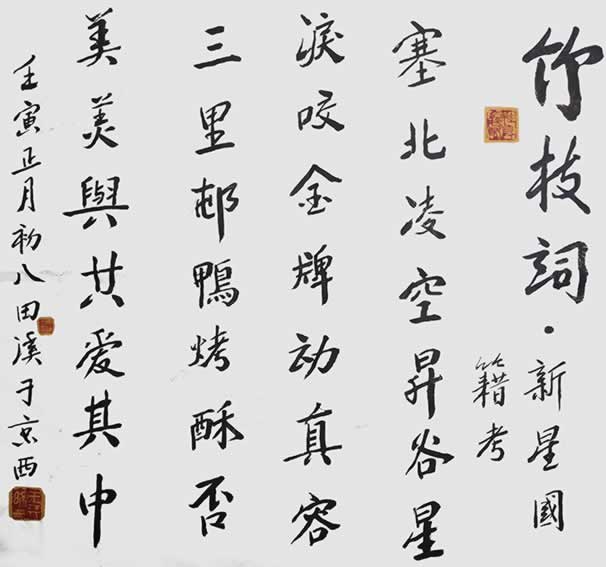 竹枝詞·新星國
籍考
塞北凌空昇谷星
淚咬金牌动真容
三里邨鴨烤酥否
美美與共爱其中
壬寅正月初八田溪于京西